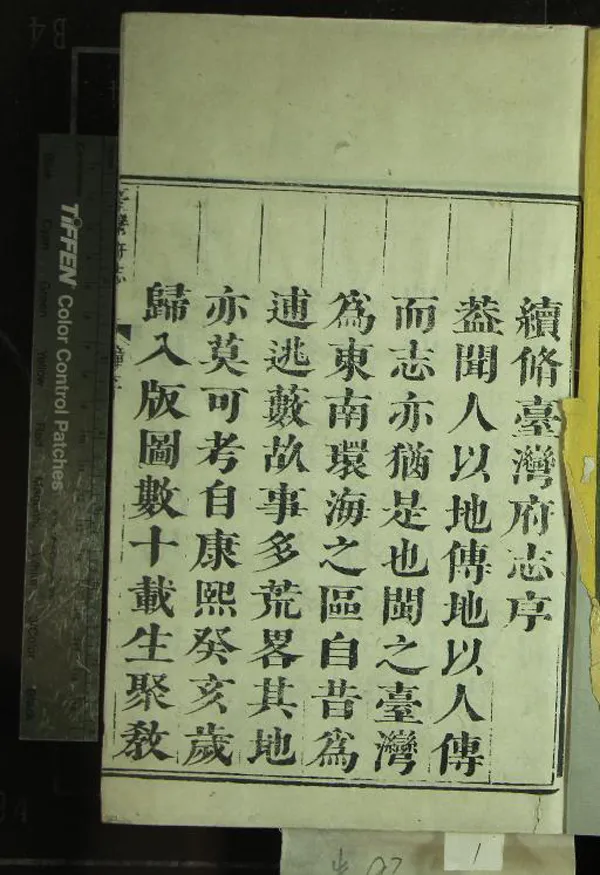 續脩臺灣府志序
葢聞人以地傳地以人傳
而志亦猶是也閩之臺灣
爲東南環海之區自昔爲
逋逃藪故事多荒畧其地
亦莫可考自康熙癸亥歲
歸入版圖數十載生聚敎
臺灣府志
TIFFEN Color Control Patches
1